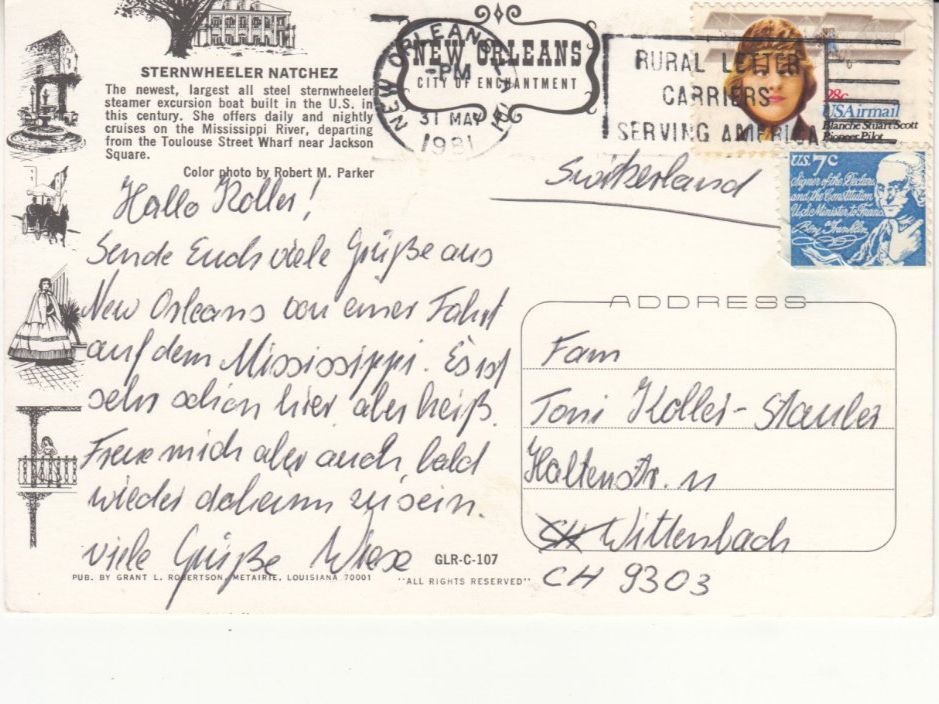 STERNWHEELER NATCHEZ
The newest, largest all steel sternwheeler
steamer excursion boat built in the U.S. in
this century. She offers daily and nightly
cruises on the Mississippi River, departing
from the Toulouse Street Wharf near Jackson
Square.
Color photo by Robert M. Parker
NEW ORLEANS
CITY OF ENCHANTMENT
NEW ORLEANS
PM
31 MAY
1981
RURAL LETTER
CARRIERS
SERVING AMERICA
28c
USAirmail
Blanche Stuart Scott
Pioneer Pilot
U.S. 7c
Signer of the Declara
and the Constitution
U.S. Minister to France
Benj Franklin
Switzerland
Hallo Koller!
Sende Euch viele Grüße aus
New Orleans von einer Fahrt
auf dem Mississippi. Es ist
sehr schön hier aber heiß.
Freue mich aber auch bald
wieder daheim zu sein.
viele Grüße
ADDRESS
Fam
Toni Koller-Stauber
Haltenstr. 11
CH Wittenbach
CH 9303
GLR-C-107
PUB. BY GRANT L. ROBERTSON, METAIRIE, LOUISIANA 70001
"ALL RIGHTS RESERVED"